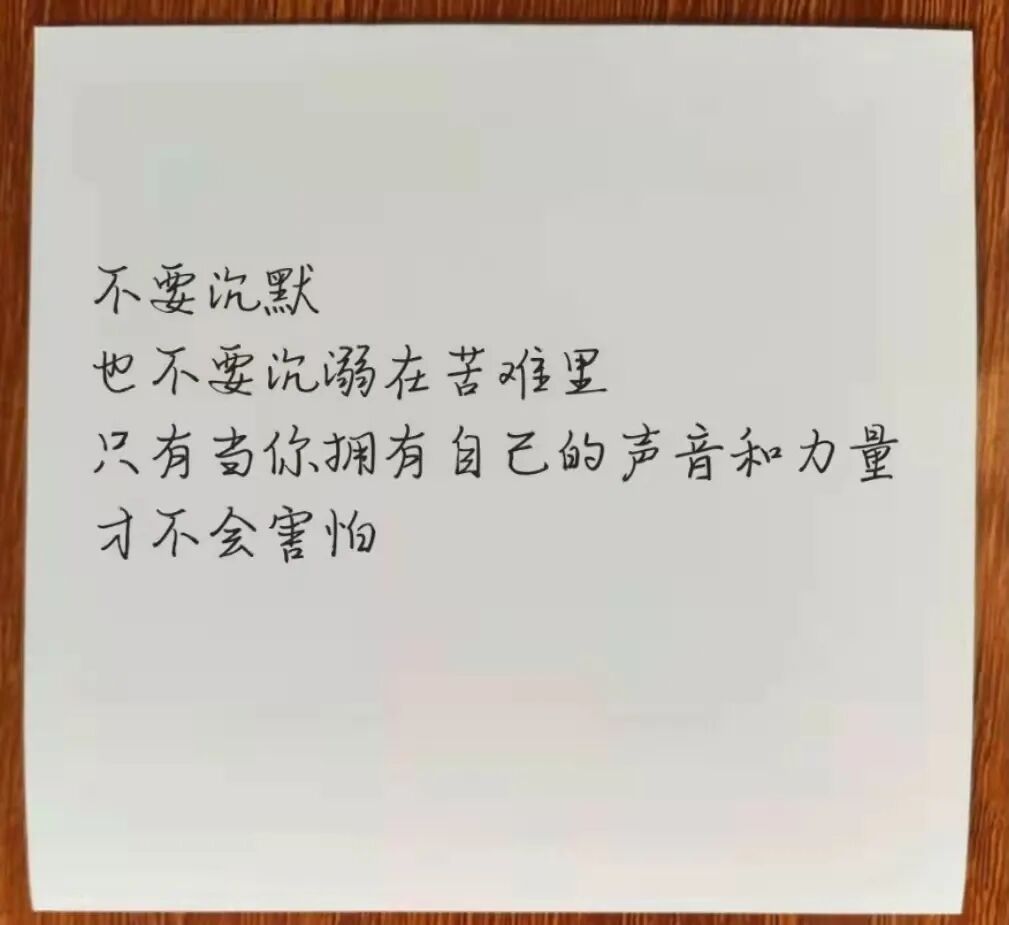 不要沉默
也不要沉溺在苦难里
只有当你拥有自己的声音和力量
才不会害怕